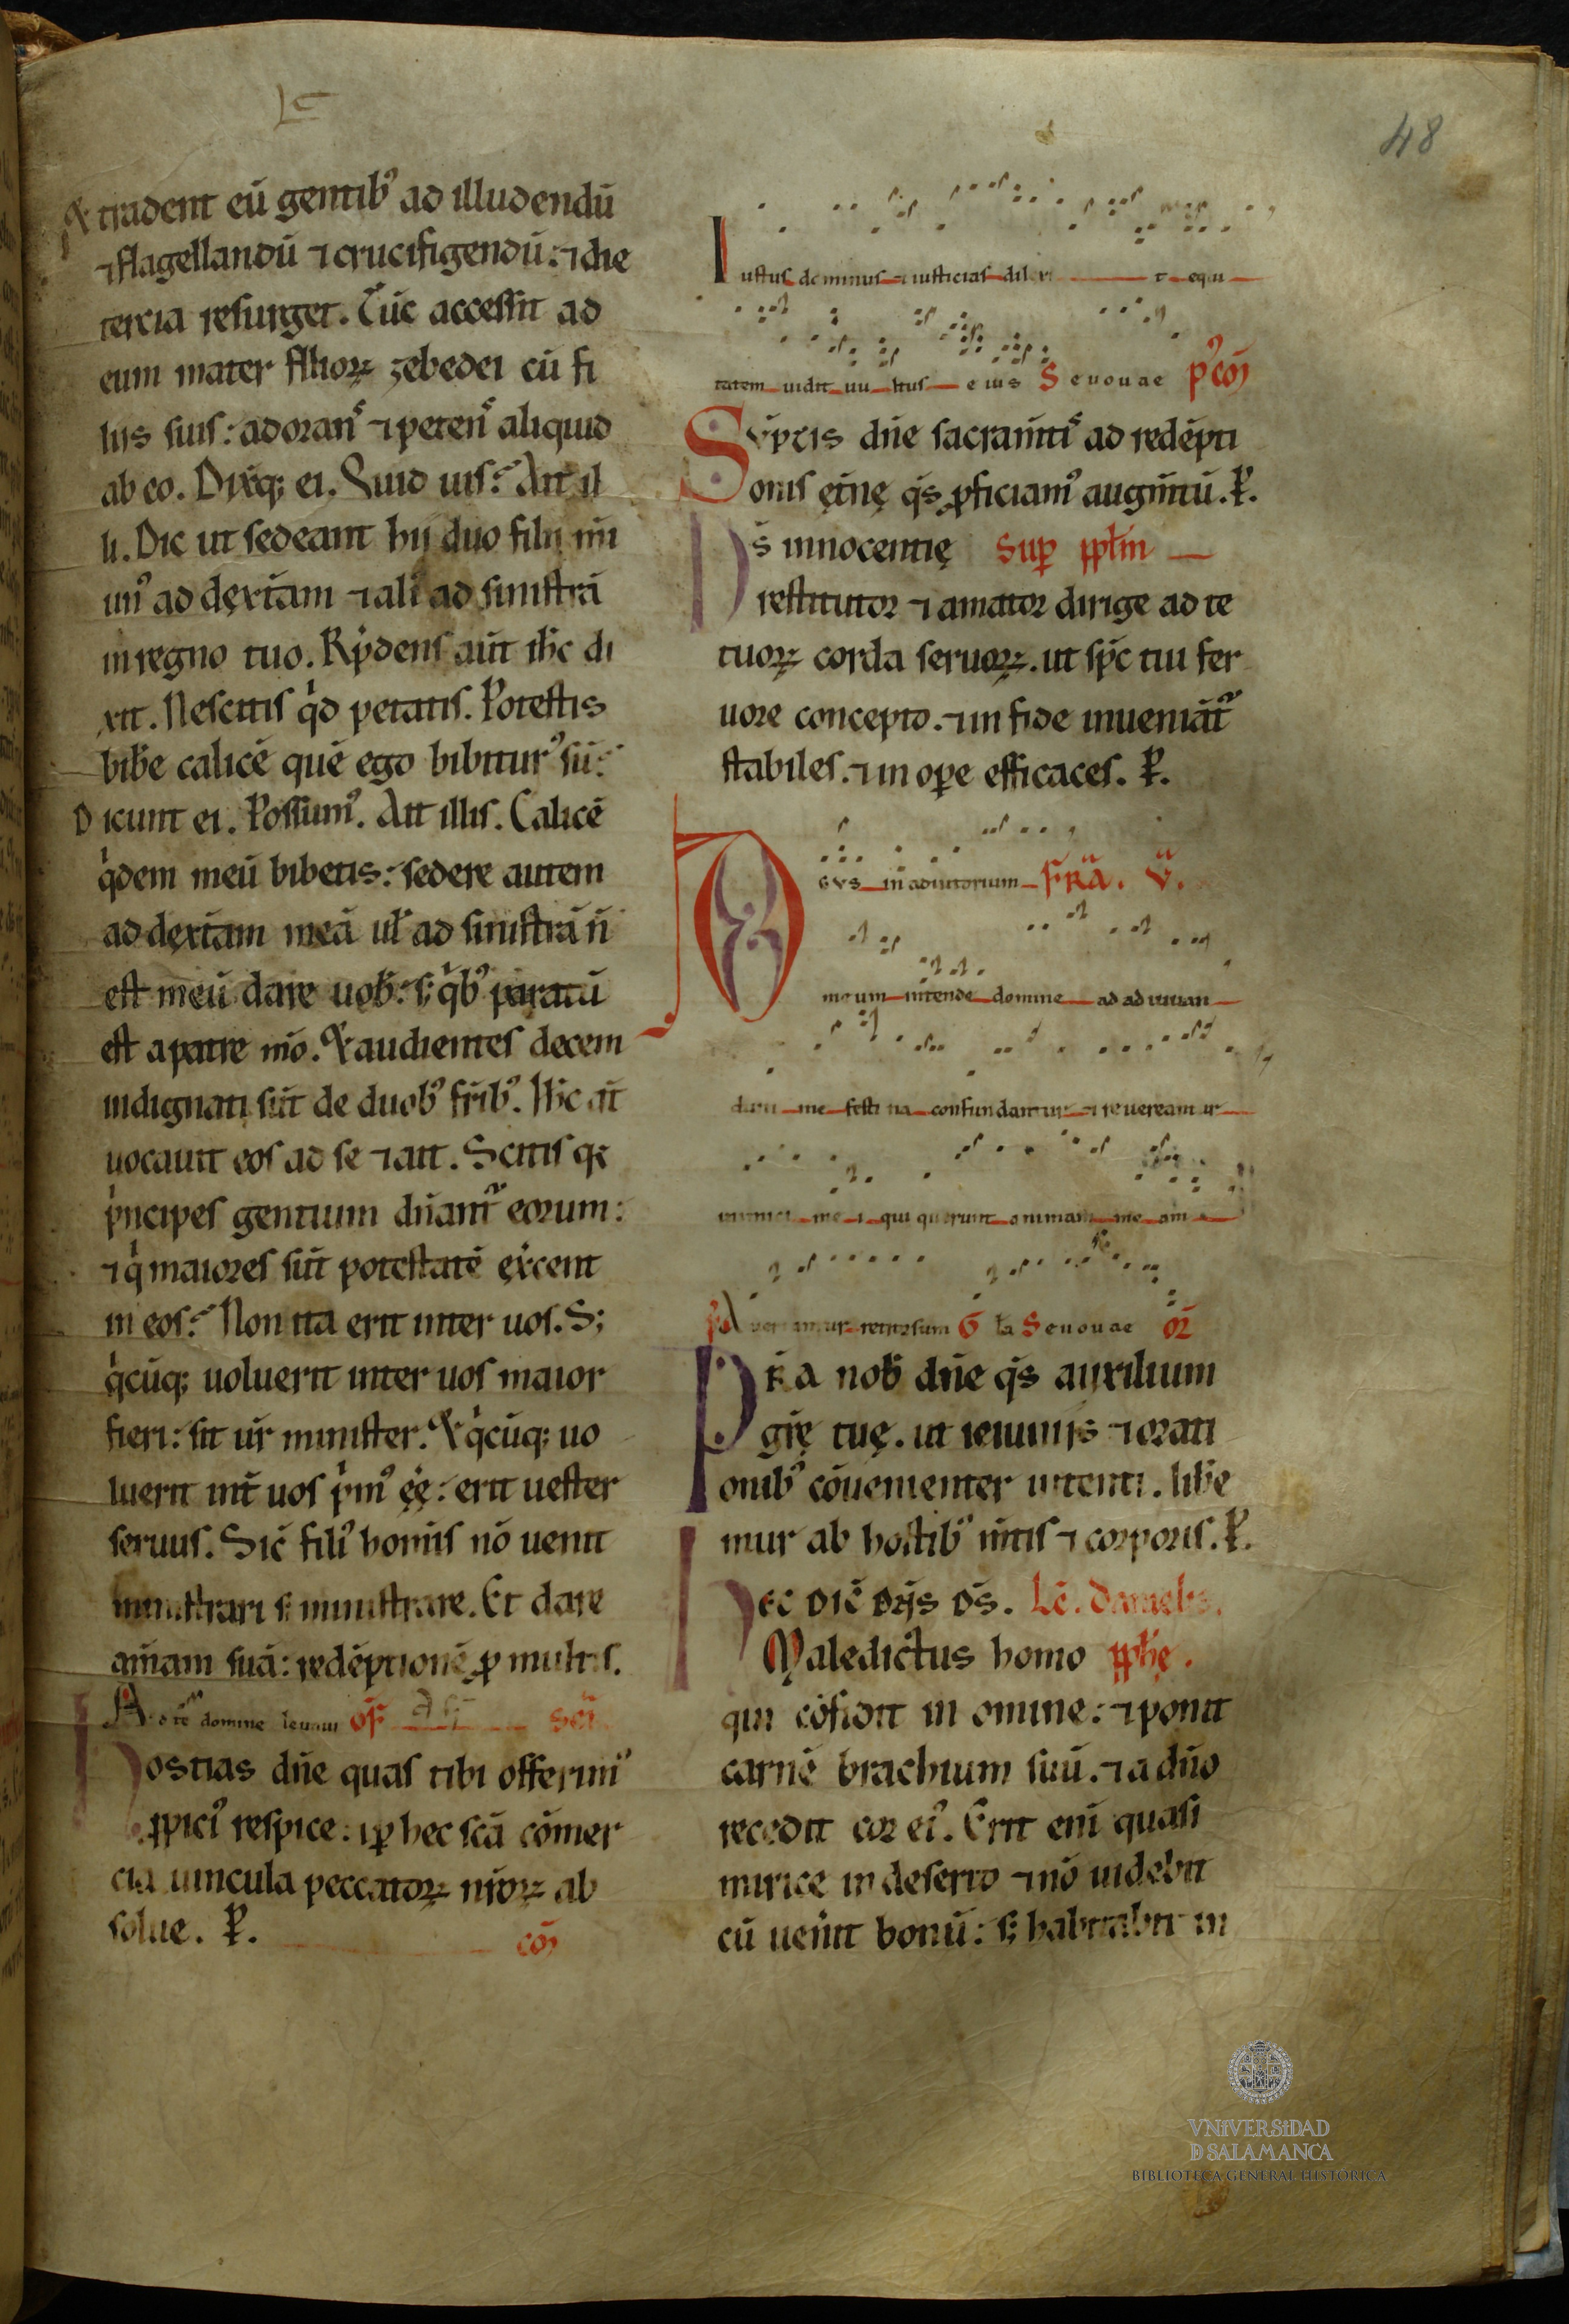 48
& tradent eū gentib᾽ ad illudendū
⁊ flagellandū ⁊ crucifigendū: ⁊ die
tercia resurget. Tūc accessit ad
eum mater filioꝝ zebedei cū fi
liis suis: adoranˢ ⁊ petenˢ aliquid
ab eo. Dixitq; ei. Quid uis? Ait il
li. Dic ut sedeant hij duo filii mi
un᾽ ad dęxtāam ⁊ ali᾽ ad sinistrā
in regno tuo. Rp̄dens aūt ih̄c di
xit. Nescitis qͥd petatis. Potestis
bibe̅ calicē quē ego bibitur᾽ sū?
Dicunt ei. Possum᾽. Ait illis. Calicē
qͥdem meū bibetis: sedere autem
ad dęxt̄am meā ul̄ ad sinistrā n̄
est meū dare uob̄: s; qͥb᾽ paratū
est a patre mō. & audientes decem
indignati sūt de duob᾽ frīb᾽. Ih̄c aūt
uocauit eos ad se ⁊ ait. Scitis q;
pͥncipes gentium dn̄ant᷑ eorum:
⁊ qͥ maiores sūt potestatē ęxe̅cent
in eos? Non ita erit inter uos. S;
qͥcūq; uoluerit inter uos maior
fieri: sit ur̄ minister. & qͥcūq; uo
luerit int̄ uos pͥm᾽ ęę̄: erit uester
seruus. Sic̄ fili᾽ homīs nō uenit
ministrari s; ministrare. Et dare
am̄am suā: redēptionē ꝓ multis.
Ad te domine leuaui of̄ sec̄
Hostias dn̄e quas tibi offerim᾽
ꝓpici᾽ respice: ⁊ ꝑ hec scā cōmer
cia uincula peccatoꝝ nr̄oꝝ ab
solue. P̱. cō
Iustus dominus ⁊ iusticias dilexi t equi
tatem uidit uu ltus eius Seuouae p᾽cō
Sūptis dn̄e sacram̄tiˢ ad redēpti
onis ęt̄nę qͣs ꝓficiam᾽ augm̄tū. P̱.
Ds̄ innocentię Sup̱ pp̄lm
restitutor ⁊ amator dirige ad te
tuoꝝ corda seruoꝝ. ut sp̄c tui fer
uore concepto. ⁊ in fide inueniāt᷑
stabiles. ⁊ in ope̱ efficaces. P̱.
Deus in adiutorium FR̄A. V̄.
meum intende domine ad adiuuan
dum me festina confundantur ⁊ reuereantur
inimici mei qui querunt animam meam
PS Auertantur retrorsum G la Seuouae or̄
PRͤA nob̄ dn̄e qͣs auxilium
gr̄ę tuę. ut ieiuniis ⁊ orati
onib᾽ cōuenienter intenti. libe̅
mur ab hostib᾽ m̄tis ⁊ corporis. P̱.
Hec dic̄ dn̄s ds̄. Lc̄. danielis
Maledictus homo pph̄ę.
qui cōfidit in omine: ⁊ ponit
carnē brachium suū. ⁊ a dn̄o
recedit cor ei᾽. Erit eni᾽ quasi
mirice in deserto ⁊ nō uidebit
cū uen̄it bonū: s; habitabit in
VNIVERSIDAD
D SALAMANCA
BIBLIOTECA GENERAL HISTÓRICA